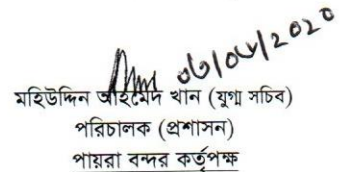 ০৬/০৮/২০২০
মহিউদ্দিন আহমেদ খান (যুগ্ম সচিব)
পরিচালক (প্রশাসন)
পায়রা বন্দর কর্তৃপক্ষ